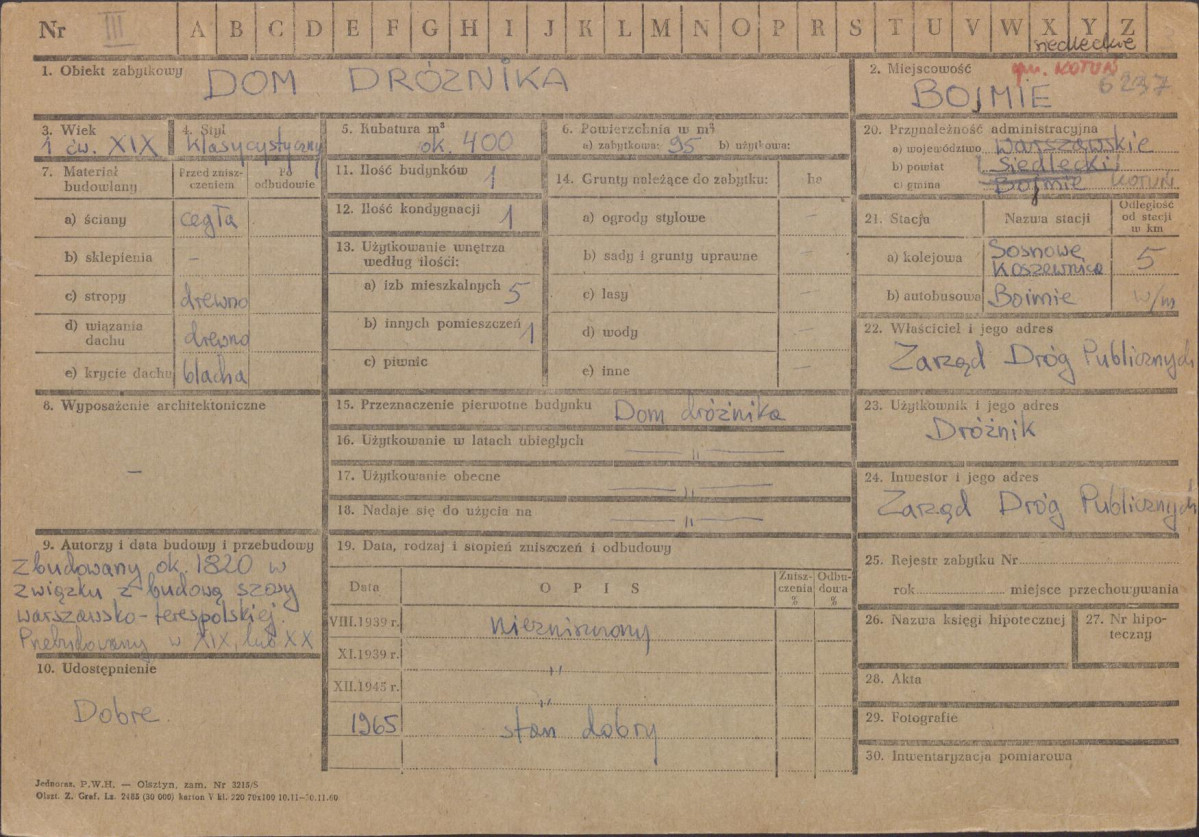 Nr III A B C D E F G H I J K L M N O P R S T U V W X Y Z
siedleckie
1. Obiekt zabytkowy DOM DRÓŻNIKA
2. Miejscowość gm. KOTUŃ
BOJMIE 6237
3. Wiek
1 ćw. XIX
4. Styl
klasycystyczny
5. Kubatura m³
ok. 400
6. Powierzchnia w m²
a) zabytkowa: 95 b) użytkowa:
7. Materiał budowlany
Przed zniszczeniem
Po odbudowie
a) ściany cegła
b) sklepienia –
c) stropy drewno
d) wiązania dachu drewno
e) krycie dachu blacha
8. Wyposażenie architektoniczne
–
9. Autorzy i data budowy i przebudowy
Zbudowany ok. 1820 w
związku z budową szosy
warszawsko-terespolskiej.
Przebudowany w XIX, lub XX
10. Udostępnienie
Dobre
11. Ilość budynków 1
12. Ilość kondygnacji 1
13. Użytkowanie wnętrza
według ilości:
a) izb mieszkalnych 5
b) innych pomieszczeń 1
c) piwnic
14. Grunty należące do zabytku: ha
a) ogrody stylowe –
b) sady i grunty uprawne –
c) lasy –
d) wody –
e) inne –
15. Przeznaczenie pierwotne budynku Dom dróżnika
16. Użytkowanie w latach ubiegłych — " —
17. Użytkowanie obecne — " —
18. Nadaje się do użycia na — " —
19. Data, rodzaj i stopień zniszczeń i odbudowy
Data OPIS Zniszczenia % Odbudowa %
VIII.1939 r. niezniszczony
XI.1939 r. "
XII.1945 r. "
1965 stan dobry
20. Przynależność administracyjna
a) województwo warszawskie
b) powiat Siedlecki
c) gmina Bojmie KOTUŃ
21. Stacja Nazwa stacji Odległość od stacji w km
a) kolejowa Sosnowe
Koszewnica 5
b) autobusowa Bojmie w/m
22. Właściciel i jego adres
Zarząd Dróg Publicznych
23. Użytkownik i jego adres
Dróżnik
24. Inwestor i jego adres
Zarząd Dróg Publicznych
25. Rejestr zabytku Nr
rok miejsce przechowywania
26. Nazwa księgi hipotecznej
27. Nr hipoteczny
28. Akta
29. Fotografie
30. Inwentaryzacja pomiarowa
Jednoraz. P.W.H. — Olsztyn, zam. Nr 3215/S
Olszt. Z. Graf. Lz. 2485 (30 000) karton V kl. 220 70x100 10.11–30.11.60